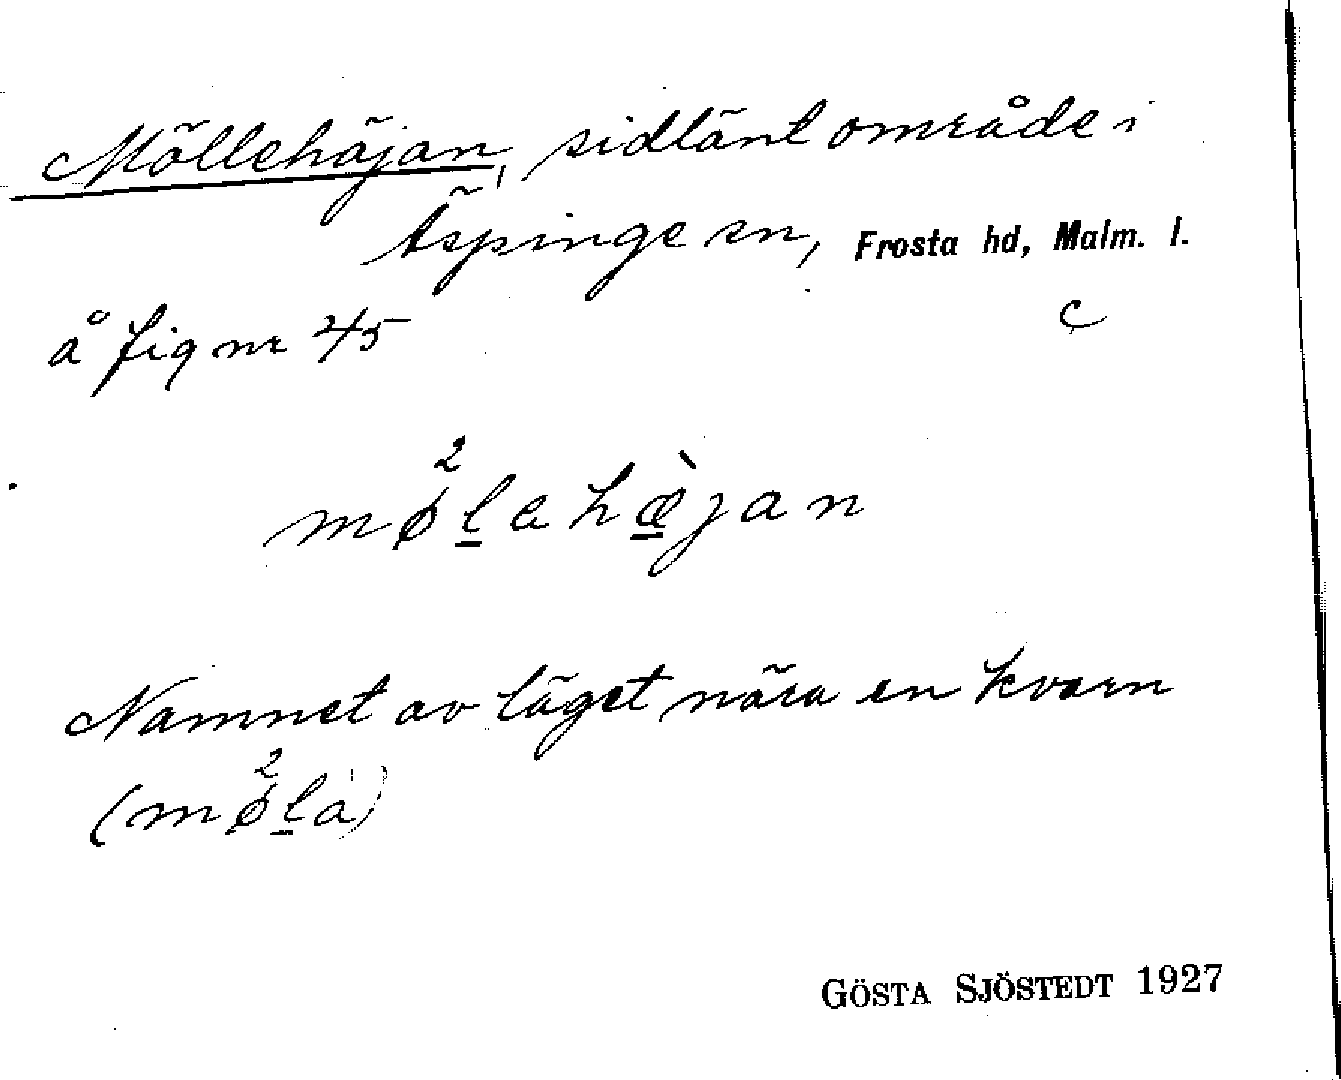 Möllehäjan, sidlänt område i
Äspinge sn, Frosta hd, Malm. l.
å fig nr 45
c
mø²lahæ̀jan
Namnet av läget nära en kvarn
(mø²la)
GÖSTA SJÖSTEDT 1927